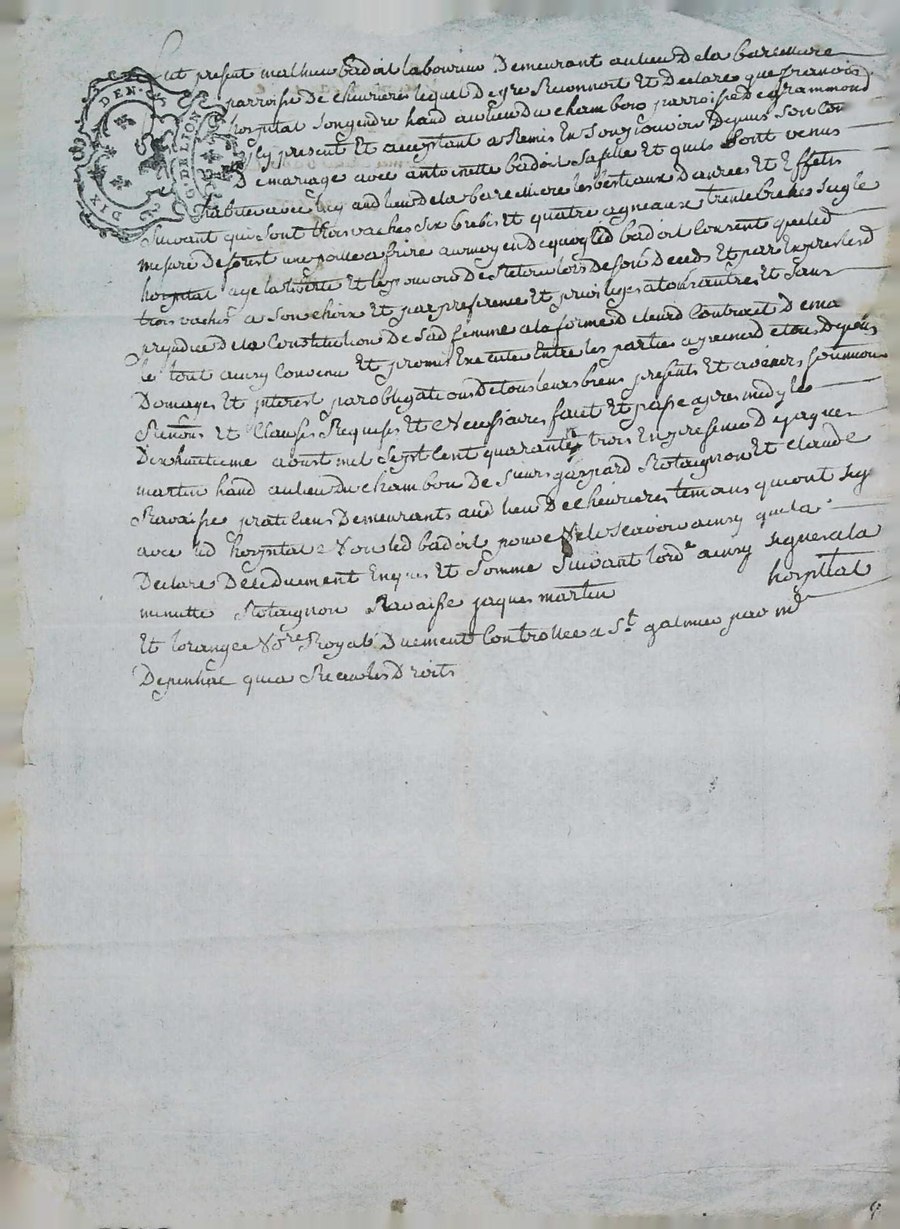 DIX DEN.
G. DE LION
Fut present mathieu badoil laboureur Demeurant au lieu de la baremiere
parroisse De cheurieres lequel De gre Reconnoit Et Declare que francois
hospital Son gendre habd au lieu du chambon parroisse De grammond
Icy present Et acceptant a Remis En Son pouvoir Depuis Son Con
De mariage avec antoinette badoil Sa fille Et quils Sont venus
habiter avec luy aud lieu de la baremiere les bestiaux Danrees Et Effets
Suivant qui Sont trois vaches Six brebis Et quatre agneaux trente seigle
mesure De forest une au moyen De quoy led badoil Consent que led
hospital aye la liberte Et le pouvoir De lors De Son Deceds Et par Expres lesd
trois vaches a Son choix Et par preferance Et privilege a tous autres Et Sans
prejudice De la Constitution De Sad femme a la forme De leurd Contract De ma
le tout ainsy Convenu Et promis Executer Entre les parties a peine De tous Depens
Domages Et interest par obligations De tous leurs biens presents Et avenir Soumions
Renons Et Clauses Requises Et Necessaires fait Et passe apres midy le
Dix huitieme aoust mil Sept Cent quarante trois En presence De jaques
martin habd au lieu du chambon De Sieurs gaspard Rotagnon Et claude
Ravaisse praticiens Demeurants aud lieu De cheurieres temoins qui ont Sig
avec led hospital Non led badoil pour Ne le Scavoir ainsy quil a
Declare De ce duement Enquis Et Somme Suivant lorde ainsy Signes a la
minutte Rotagnon Ravaisse jaques martin hospital
Et Nore Royal Duement Controllee a St galmier par mr
Depenhac qui a Recu les Droits